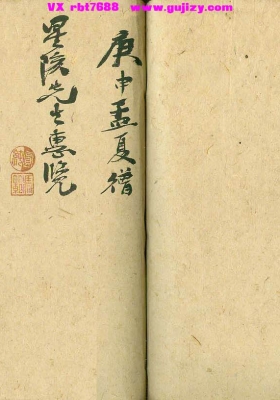 VX rbt7688  www.gujizy.com
庚申孟夏贈
星俟先生惠覽